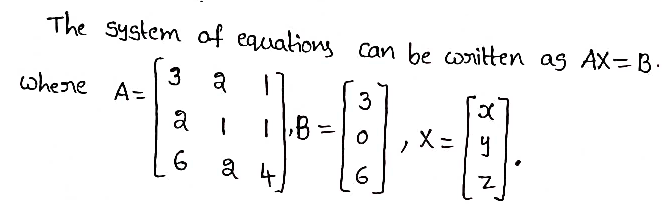 The system of equations can be written as AX=B.
where A= [3 2 1
2 1 1
6 2 4], B = [3
0
6], X = [x
y
z].